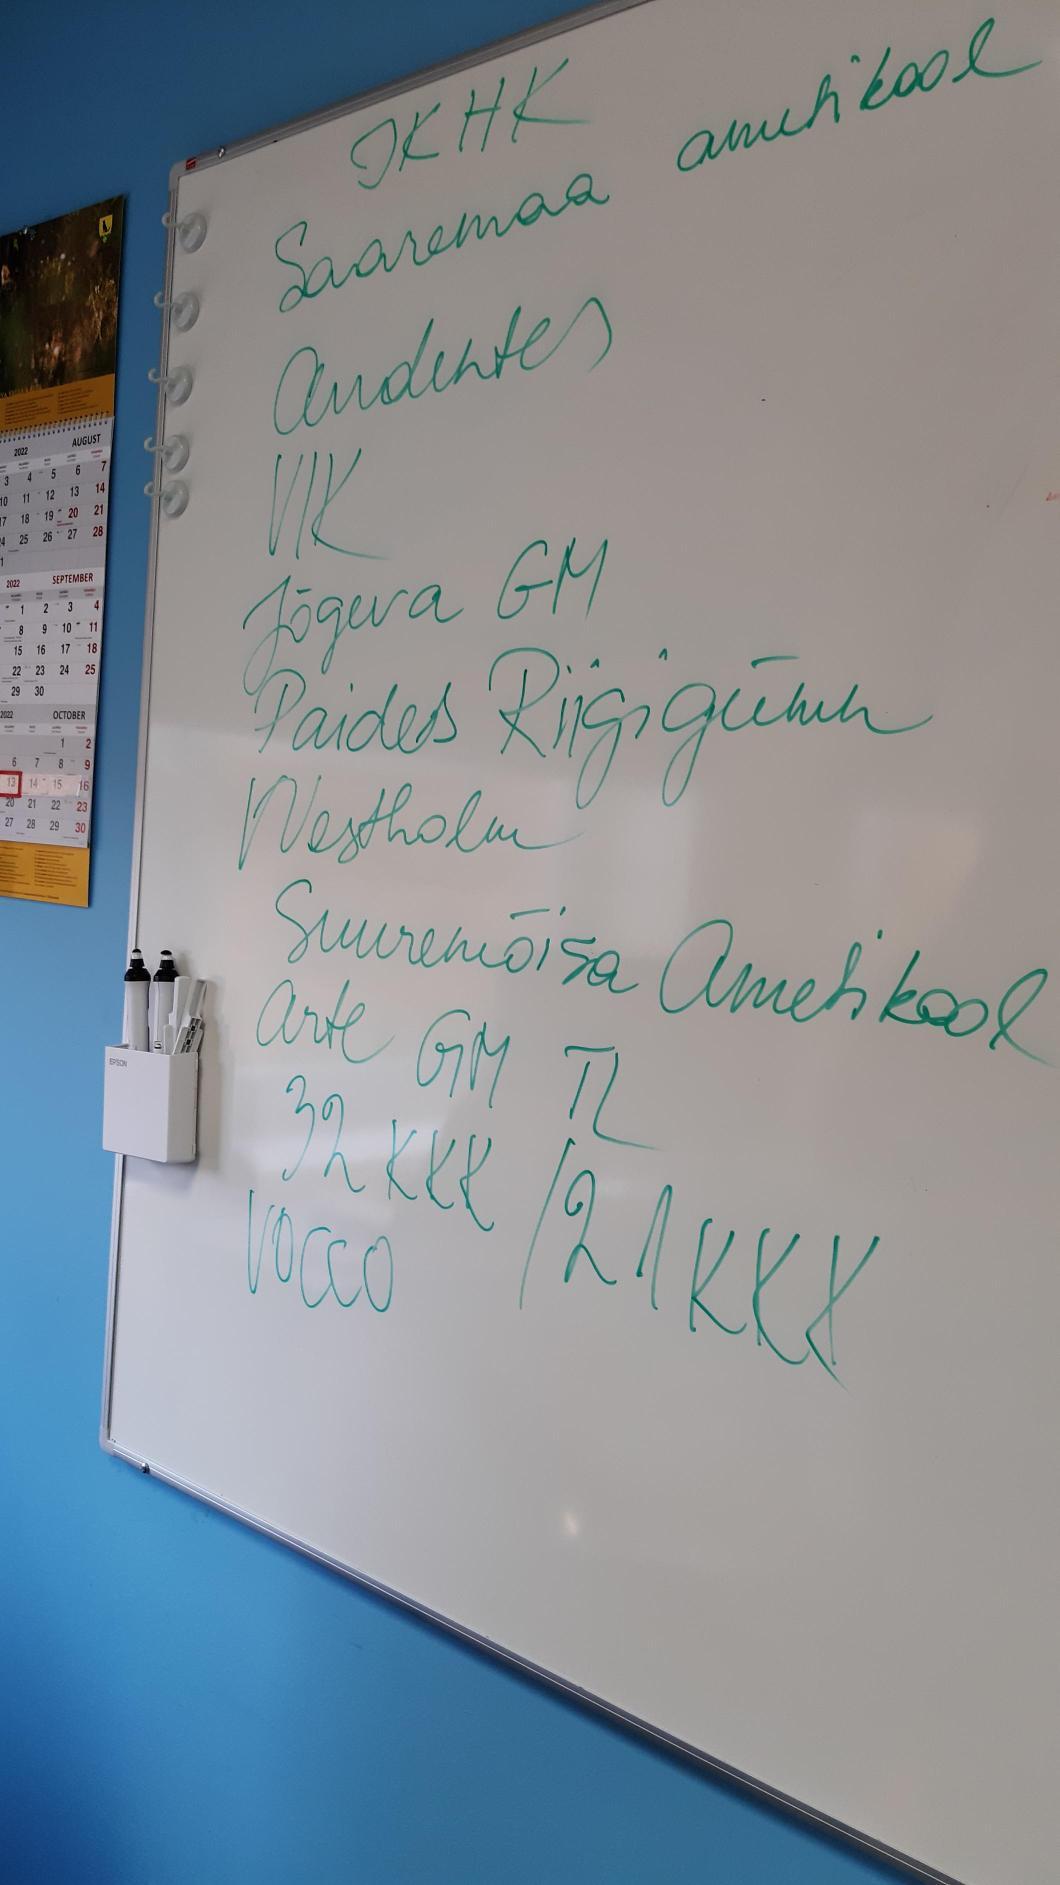 IKHK
Saaremaa ametikool
Audentes
VIK
Jõgeva GM
Paides Riigigümn
Westholm
Suuremõisa Ametikool
Arte GM TL
32 KKK / 21 KKK
VOCO
2022 AUGUST
3 4 5 6 7
10 11 12 13 14
17 18 19 20 21
24 25 26 27 28
2022 SEPTEMBER
1 2 3 4
8 9 10 11
15 16 17 18
22 23 24 25
29 30
2022 OCTOBER
1 2
6 7 8 9
13 14 15 16
20 21 22 23
27 28 29 30
EPSON